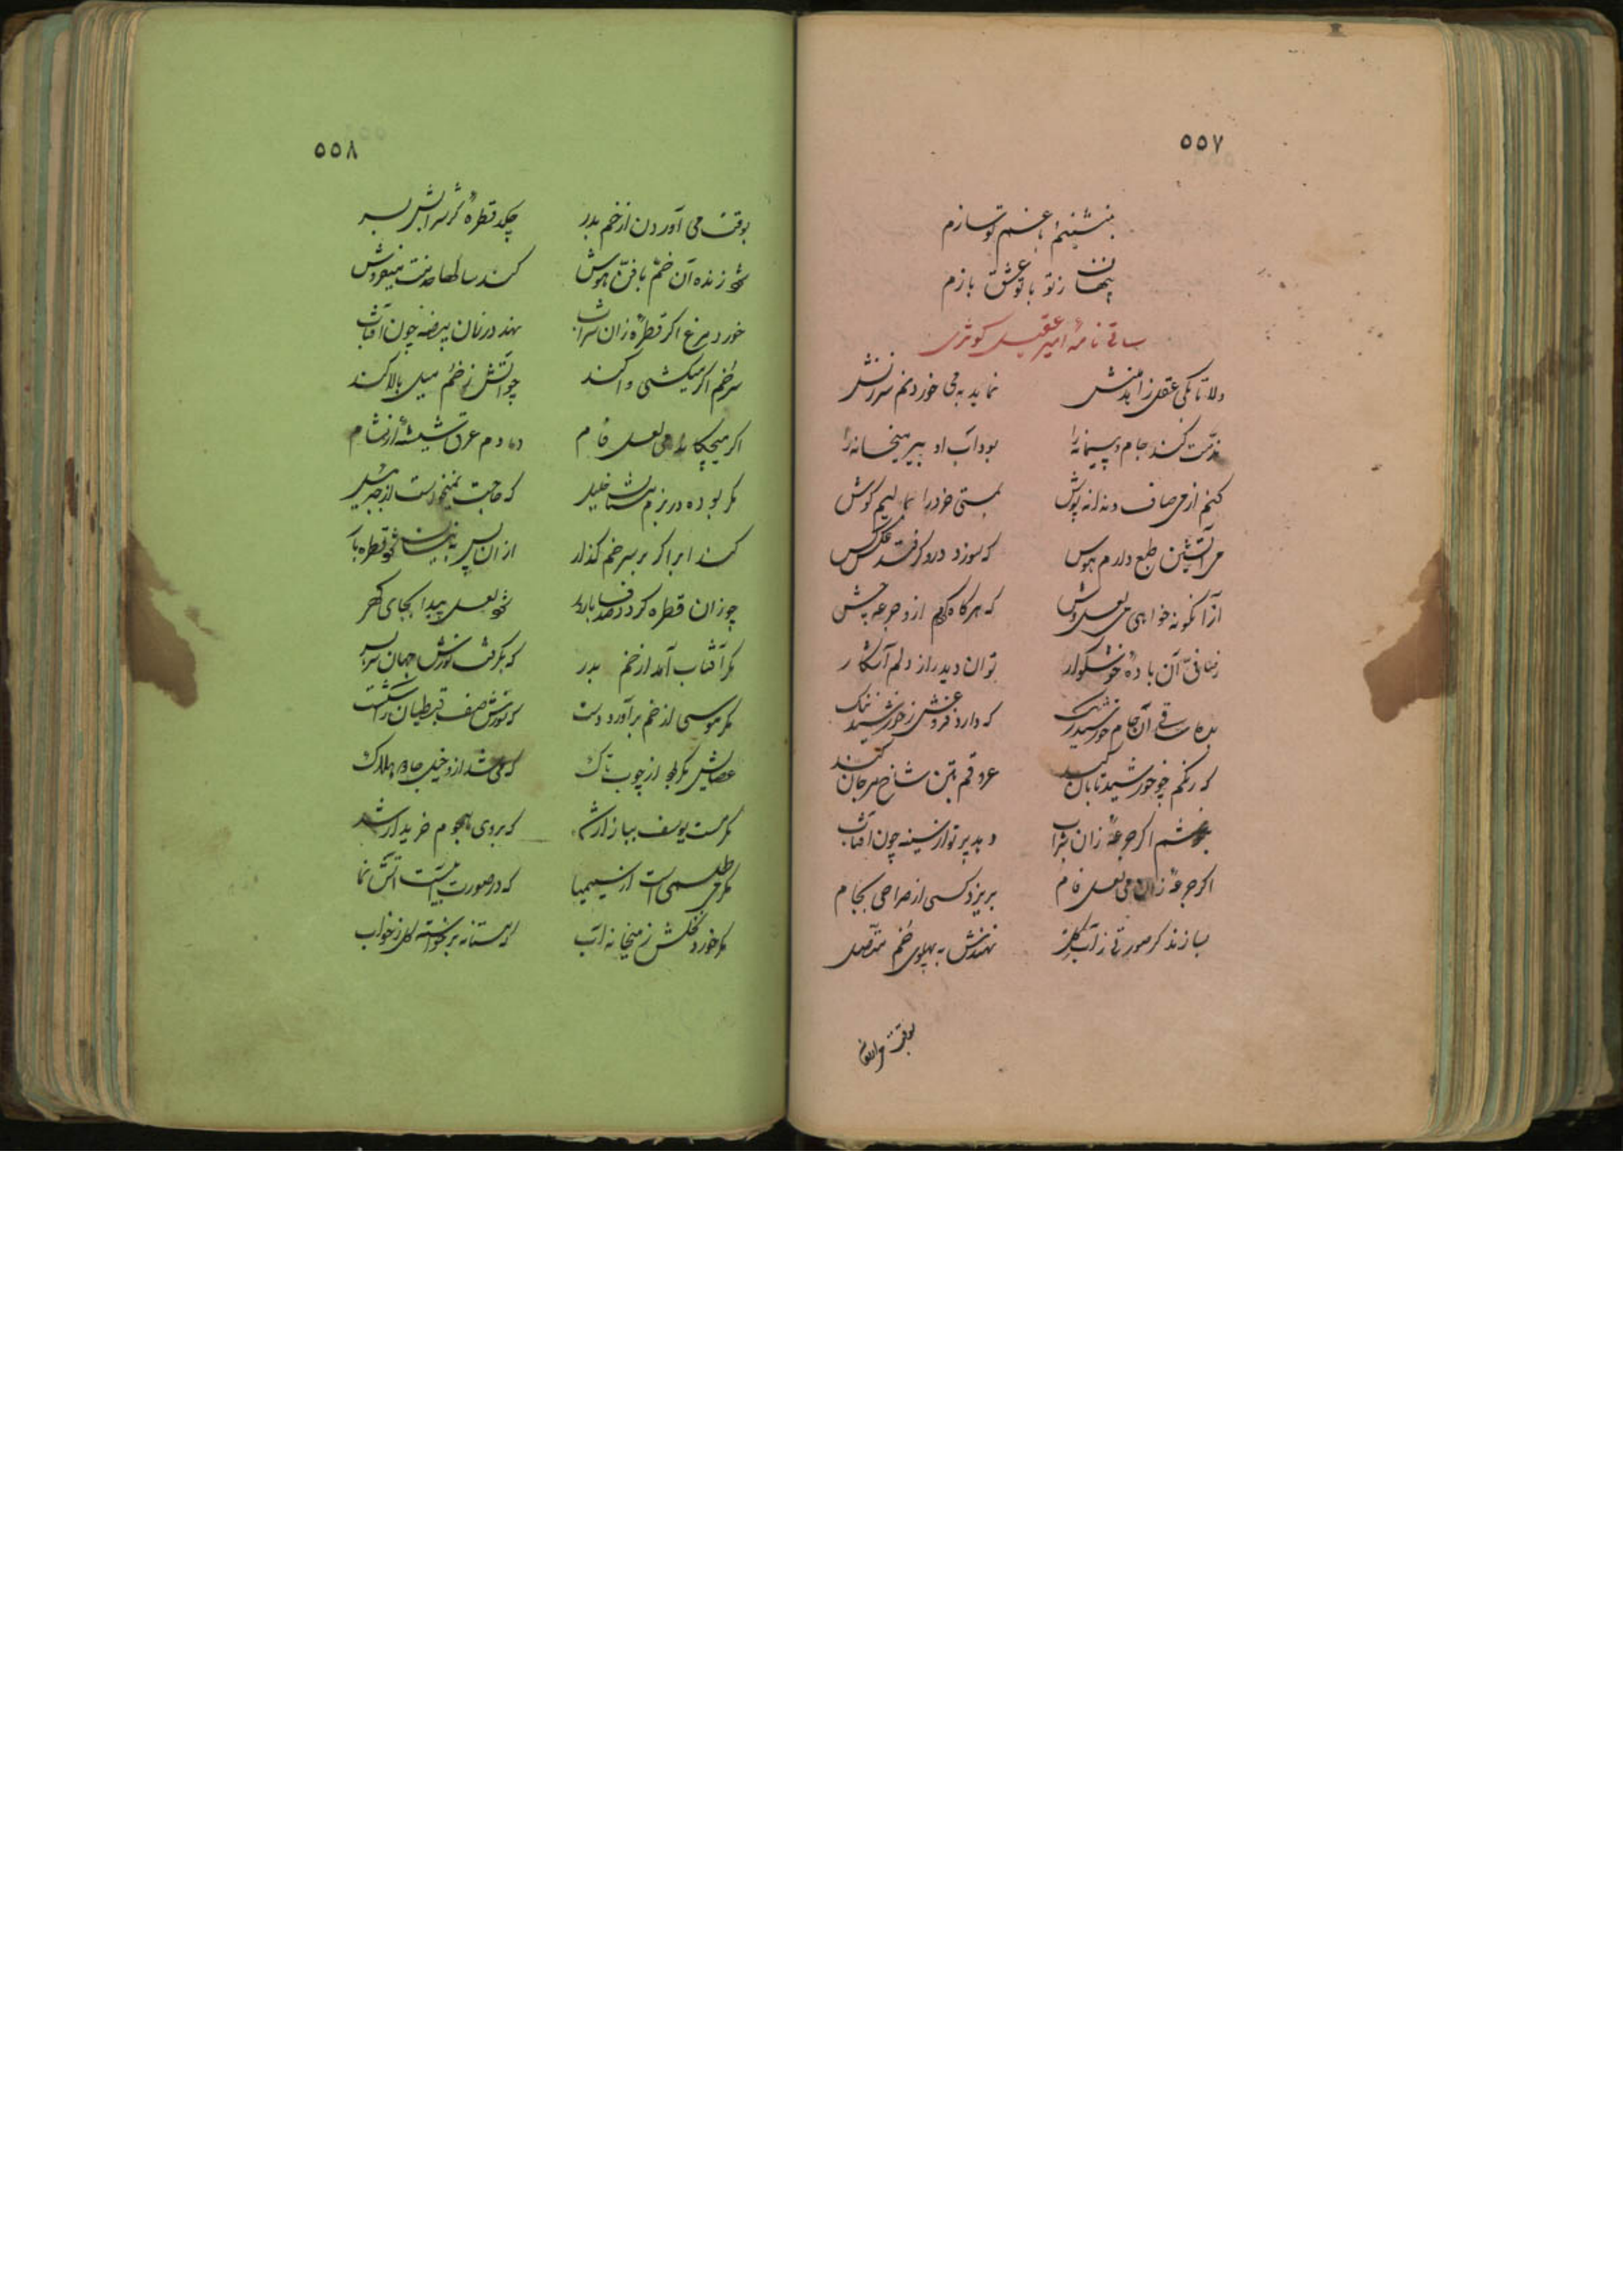 ۵۵۷
بنشینم و با غم تو سازم
پنهان ز تو با تو عشق بازم
ساقی نامهٔ امیر عقیل کوثری
دلا تا بکی عقل زاهد منش نماید به می خوردنم سرزنش
مذمت کند جام و پیمانه را بود آب او پیر میخانه را
کنم از می صاف بمستی خرد را بمالیم کوش
می آتشین طبع دارم هوس که سوزد درو کر فتد عکس
از آنکونه خواهی می لعل وش که هر کاه از و جرعه چش
آن بادهٔ خوشکوار توان دید راز دلم آشکار
بده ساقی آن جام خورشید رنک که دارد فروغش ز خورشید ننک
که رنکم چو خورشید تابان کند عروقم بتن شاخ مرجان کند
بچشم اکر جرعهٔ زان شراب دهد پرتو از سینه چون آفتاب
اکر جرعهٔ زان می لعل فام بریزد کسی از صراحی بجام
بسازند کر صورتی ز آب کل نهندش به پهلوی خم متصل
بوقت می
۵۵۸
بوقت می آوردن از خم بدر چکد قطرهٔ کر شرابش بسر
شود زنده آن خم با فر و هوش کند سالها خدمت میفروش
خورد مرغ اکر قطرهٔ زان شراب نهد در زمان بیضه چون آفتاب
سر خم اکر میکشی وا کند چو آتش ز خم میل بالا کند
اکر میچکاند می لعل فام دمادم عرق شیشهٔ از مشام
مکر بوده در بزم مستان خلیل که حاجت نمیخواست از جبرئیل
کند ابر اکر بر سر خم کذار از آن پس به نیسان شود قطره بار
چو زان قطره کردد صدف باردار شود لعل پیدا بجای کهر
مکر آفتاب آمد از خم بدر که بکرفت نورش جهان سربسر
مکر موسی از خم برآورد دست که نورش صف قبطیان را شکست
عصایش مکر بود از چوب تاک که می شد ازو خیل جادو هلاک
مکر هست یوسف ببازار که بر وی هجوم خریدار شد
مکر می طلسمی است از سیمیا که در صورت آبست آتش نما
مکر خورد نخلش ز میخانه آب که مستانه برخواسته کل ز خواب